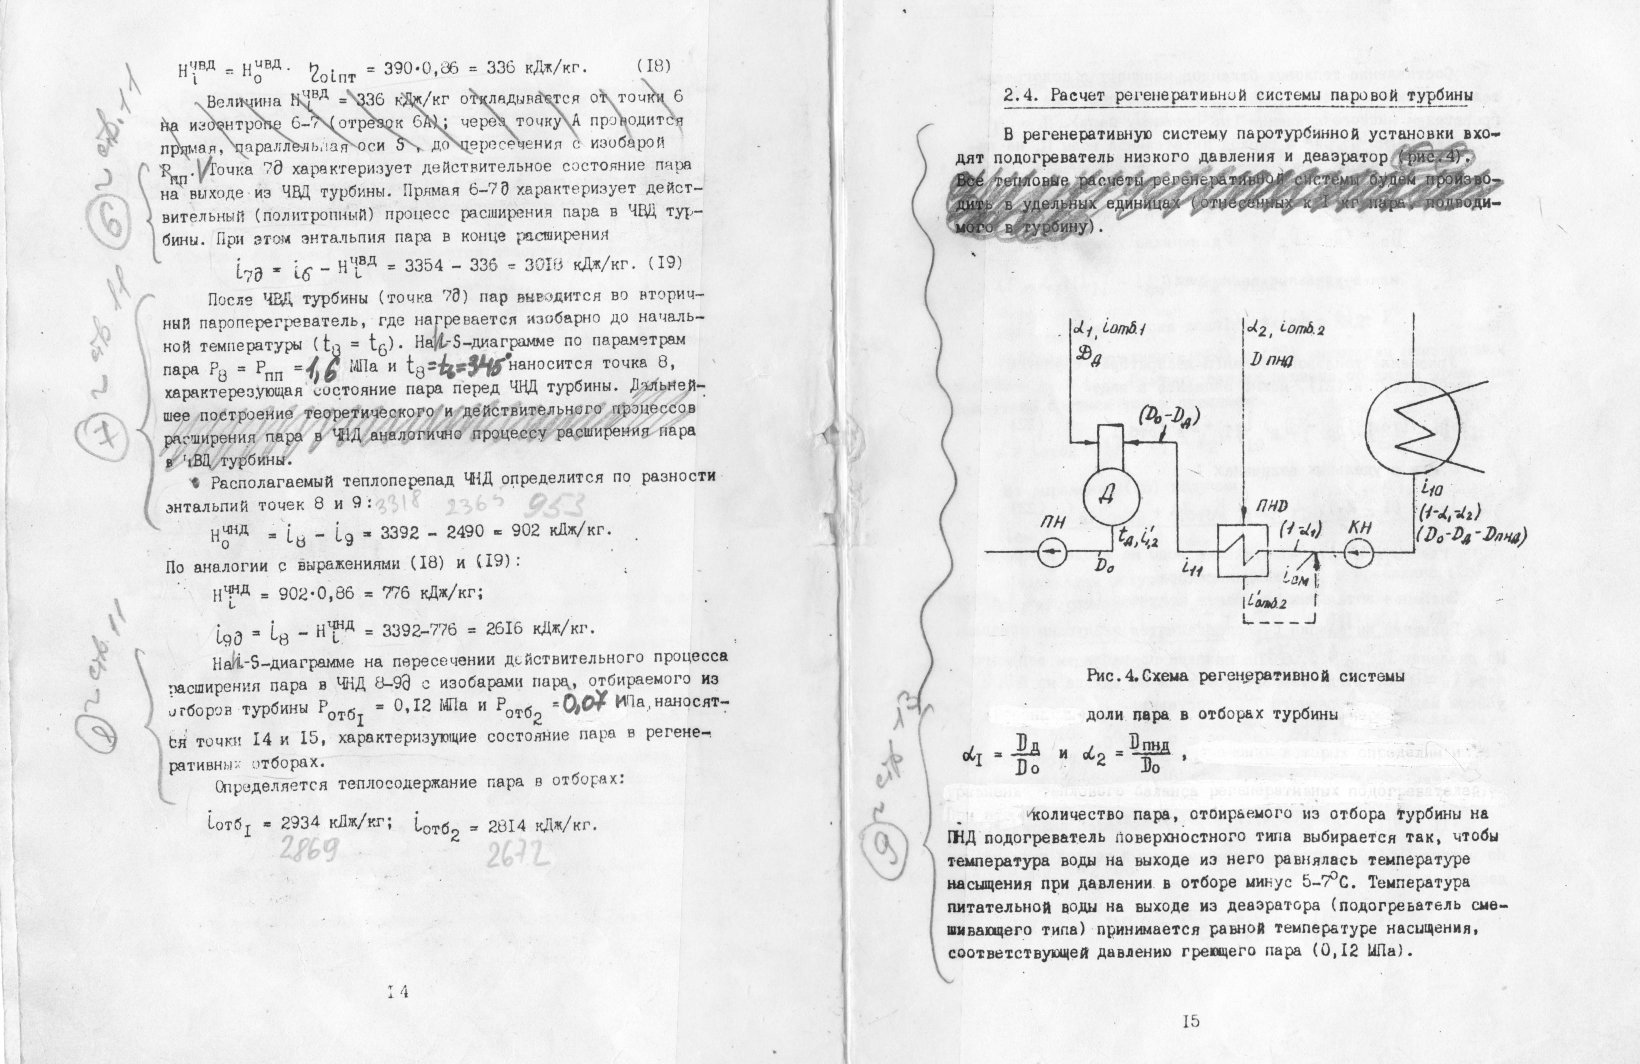 H_i^ЧВД = H_o^ЧВД · η_oi пт = 390·0,86 = 336 кДж/кг. (I8)
Величина H_i^ЧВД = 336 кДж/кг откладывается от точки 6
на изоэнтропе 6-7 (отрезок 6А); через точку А проводится
прямая, параллельная оси S, до пересечения с изобарой
Pпп. Точка 7д характеризует действительное состояние пара
на выходе из ЧВД турбины. Прямая 6-7д характеризует дейст-
вительный (политропный) процесс расширения пара в ЧВД тур-
бины. При этом энтальпия пара в конце расширения
i7д = i6 - H_i^ЧВД = 3354 - 336 = 30I8 кДж/кг. (I9)
После ЧВД турбины (точка 7д) пар выводится во вторич-
ный пароперегреватель, где нагревается изобарно до началь-
ной температуры (t8 = t6). На h-S-диаграмме по параметрам
пара P8 = Pпп = 1,6 МПа и t8 = t6 = 345° наносится точка 8,
характерезующая состояние пара перед ЧНД турбины. Дальней-
шее построение теоретического и действительного процессов
расширения пара в ЧНД аналогично процессу расширения пара
в ЧВД турбины.
Располагаемый теплоперепад ЧНД определится по разности
энтальпий точек 8 и 9: 3318 2365 953
H_o^ЧНД = i8 - i9 = 3392 - 2490 = 902 кДж/кг.
По аналогии с выражениями (I8) и (I9):
H_i^ЧНД = 902·0,86 = 776 кДж/кг;
i9д = i8 - H_i^ЧНД = 3392-776 = 26I6 кДж/кг.
На h-S-диаграмме на пересечении действительного процесса
расширения пара в ЧНД 8-9д с изобарами пара, отбираемого из
отборов турбины Pотб I = 0,I2 МПа и Pотб 2 = 0,07 МПа, наносят-
ся точки I4 и I5, характеризующие состояние пара в регене-
ративных отборах.
Определяется теплосодержание пара в отборах:
iотб I = 2934 кДж/кг; iотб 2 = 28I4 кДж/кг.
2869 2672
I4
6 2 стр. 11
7 2 стр 11
8 2 стр. 11
2.4. Расчет регенеративной системы паровой турбины
В регенеративную систему паротурбинной установки вхо-
дят подогреватель низкого давления и деаэратор (рис.4).
Все тепловые расчеты регенеративной системы будем произво-
дить в удельных единицах (отнесенных к I кг пара, подводи-
мого в турбину).
α1, iотб.1
Dд
α2, iотб.2
Dпнд
(D0-Dд)
Д
ПН
tд, i'1,2
D0
i11
ПНД
(1-α1)
iсм
i'отб.2
КН
i10
(1-α1-α2)
(D0-Dд-Dпнд)
Рис.4. Схема регенеративной системы
доли пара в отборах турбины
αI = Dд/D0 и α2 = Dпнд/D0 ,
количество пара, отбираемого из отбора турбины на
ПНД подогреватель поверхностного типа выбирается так, чтобы
температура воды на выходе из него равнялась температуре
насыщения при давлении в отборе минус 5-7°С. Температура
питательной воды на выходе из деаэратора (подогреватель сме-
шивающего типа) принимается равной температуре насыщения,
соответствующей давлению греющего пара (0,I2 МПа).
I5
9 2 стр 13